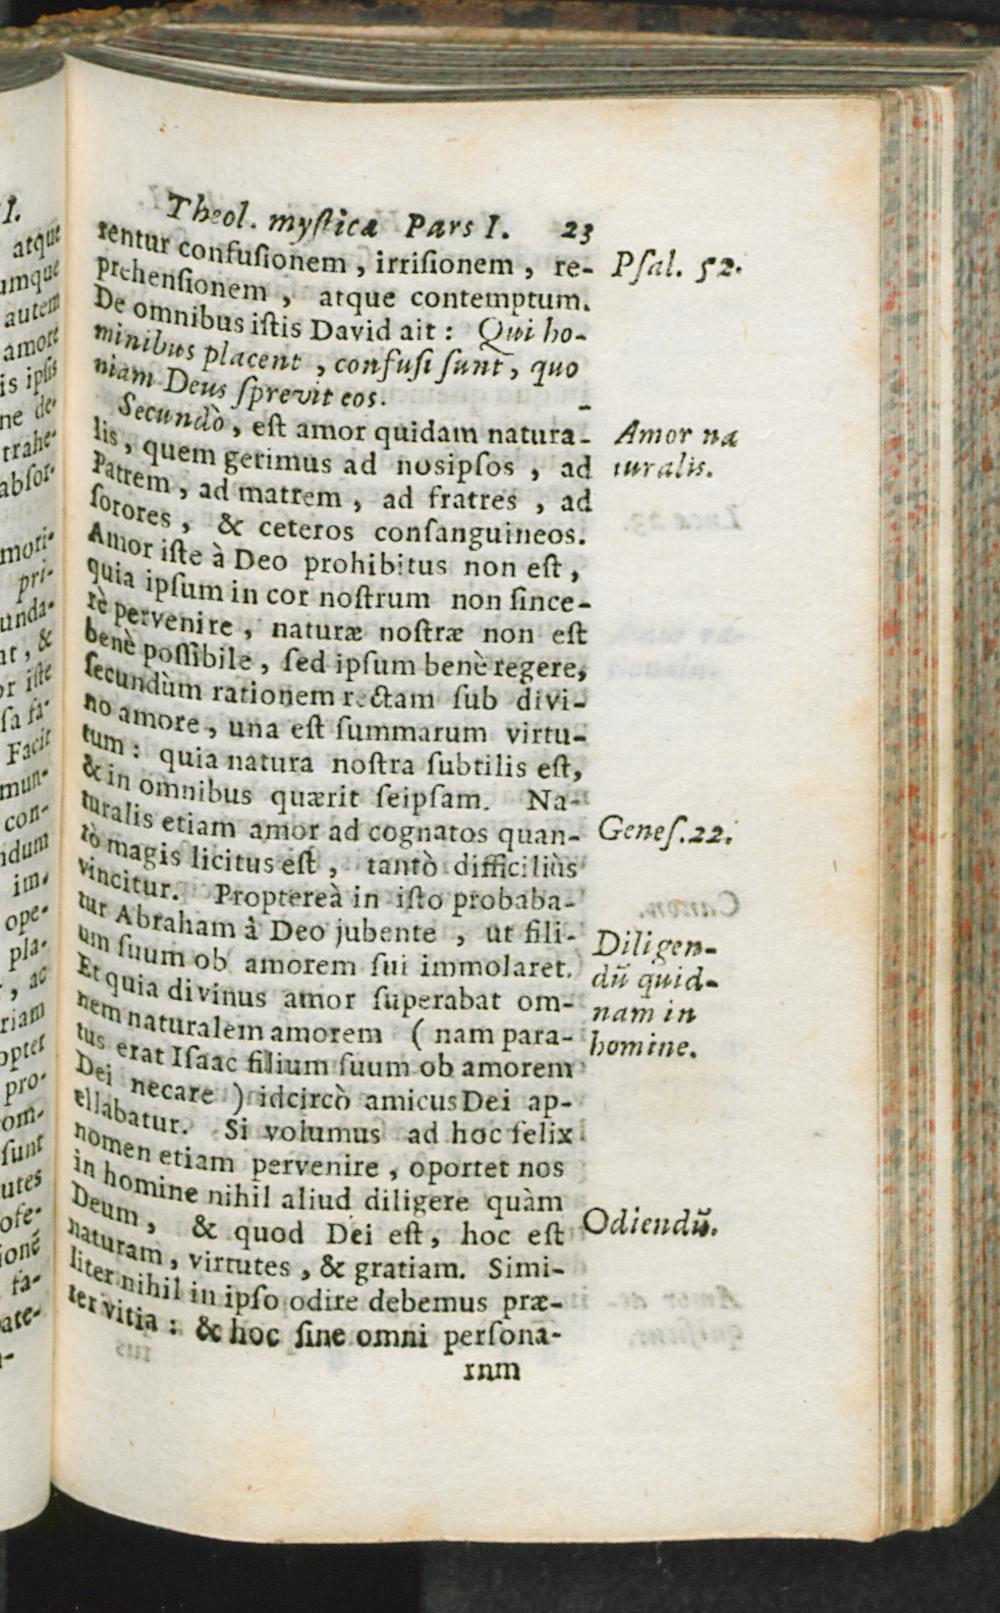 Theol. mystica Pars I. 23
rentur confuſionem, irriſionem, re-
prehenſionem, atque contemptum.
De omnibus iſtis David ait: Qui ho-
minibus placent, confuſi ſunt, quo
niam Deus ſprevit eos.
Secundò, eſt amor quidam natura-
lis, quem gerimus ad nosipſos, ad
Patrem, ad matrem, ad fratres, ad
ſorores, & ceteros conſanguineos.
Amor iſte à Deo prohibitus non eſt,
quia ipſum in cor noſtrum non ſince-
rè pervenire, naturæ noſtræ non eſt
benè poſſibile, ſed ipſum benè regere,
ſecundùm rationem rectam ſub divi-
no amore, una eſt ſummarum virtu-
tum: quia natura noſtra ſubtilis eſt,
& in omnibus quærit ſeipſam. Na-
turalis etiam amor ad cognatos quan-
tò magis licitus eſt, tantò difficiliùs
vincitur. Proptereà in iſto probaba-
tur Abraham à Deo jubente, ut fili-
um ſuum ob amorem ſui immolaret.
Et quia divinus amor ſuperabat om-
nem naturalem amorem (nam para-
tus erat Iſaac filium ſuum ob amorem
Dei necare) idcircò amicus Dei ap-
ellabatur. Si volumus ad hoc felix
nomen etiam pervenire, oportet nos
in homine nihil aliud diligere quàm
Deum, & quod Dei eſt, hoc eſt
naturam, virtutes, & gratiam. Simi-
liter nihil in ipſo odire debemus præ-
ter vitia: & hoc ſine omni perſona-
rnm
Pſal. 52.
Amor na
turalis.
Geneſ. 22.
Diligen-
dũ quid-
nam in
homine.
Odiendũ.
I.
atque
umque
autem
amore
is ipſis
ne de-
trahe-
abſor-
mori-
pri-
unda-
t, &
or iſte
ſa fa-
Facit
mun-
con-
ndum
im-
ope-
pla-
, ac
riam
opter
pro-
om-
ſunt
utes
ofe-
ionẽ
fa-
ate-